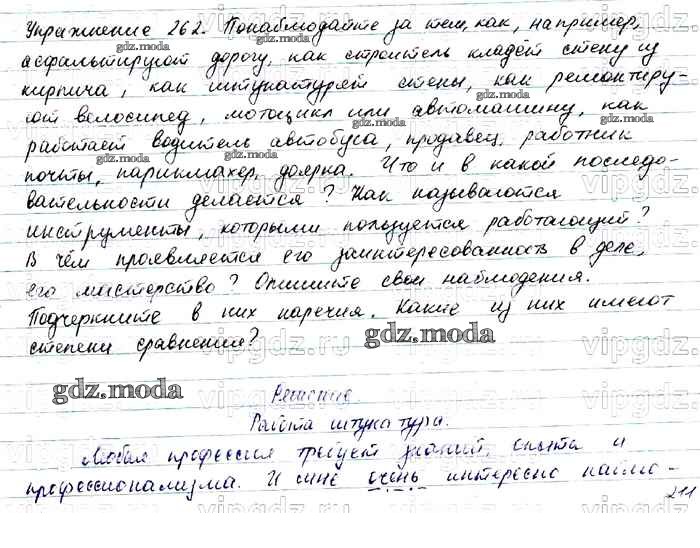 Упражнение 262. Понаблюдайте за тем, как, например,
асфальтируют дорогу, как строитель кладёт стену из
кирпича, как штукатурят стены, как ремонтиру-
ют велосипед, мотоцикл или автомашину, как
работает водитель автобуса, продавец, работник
почты, парикмахер, доярка. Что и в какой последо-
вательности делается? Как называются
инструменты, которыми пользуется работающий?
В чём проявляется его заинтересованность в деле,
его мастерство? Опишите свои наблюдения.
Подчеркните в них наречия. Какие из них имеют
степени сравнения?
Решение.
Работа штукатура.
Любая профессия требует знаний, опыта и
профессионализма. И мне очень интересно наблю-
211
gdz.moda
gdz.moda
gdz.moda
gdz.moda
gdz.moda
gdz.moda
gdz.moda
gdz.moda
gdz.moda
gdz.moda
gdz.moda
gdz.moda
vipgdz.ru
vipgdz.ru
vipgdz.ru
vipgdz.ru